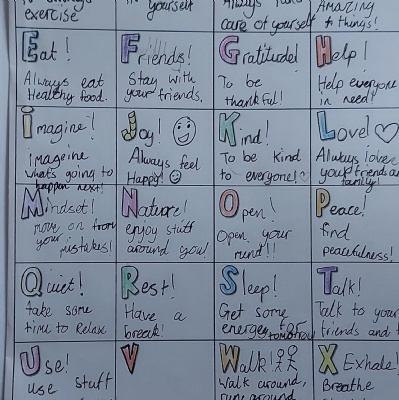 exercise
in yourself
care of yourself
Amazing
things!
Eat!
Always eat
Healthy food.
Friends!
Stay with
your friends.
Gratitude!
To be
thankful!
Help!
Help everyone
in need!
imagine!
imageine
whats going to
happen next!
Joy!
Always feel
Happy!
Kind!
To be kind
to everyone!
Love!
Always love
your friends
family!
Mindset!
move on from
your mistakes!
Nature!
enjoy stuff
around you!
Open!
Open your
mind!!
Peace!
find
peacefulness!
Quiet!
take some
time to Relax
Rest!
Have a
break!
Sleep!
Get some
energy for
tomorrow
Talk!
Talk to your
friends and
Use!
use stuff
V
Walk!
Walk around,
run around
X Exhale!
Breathe